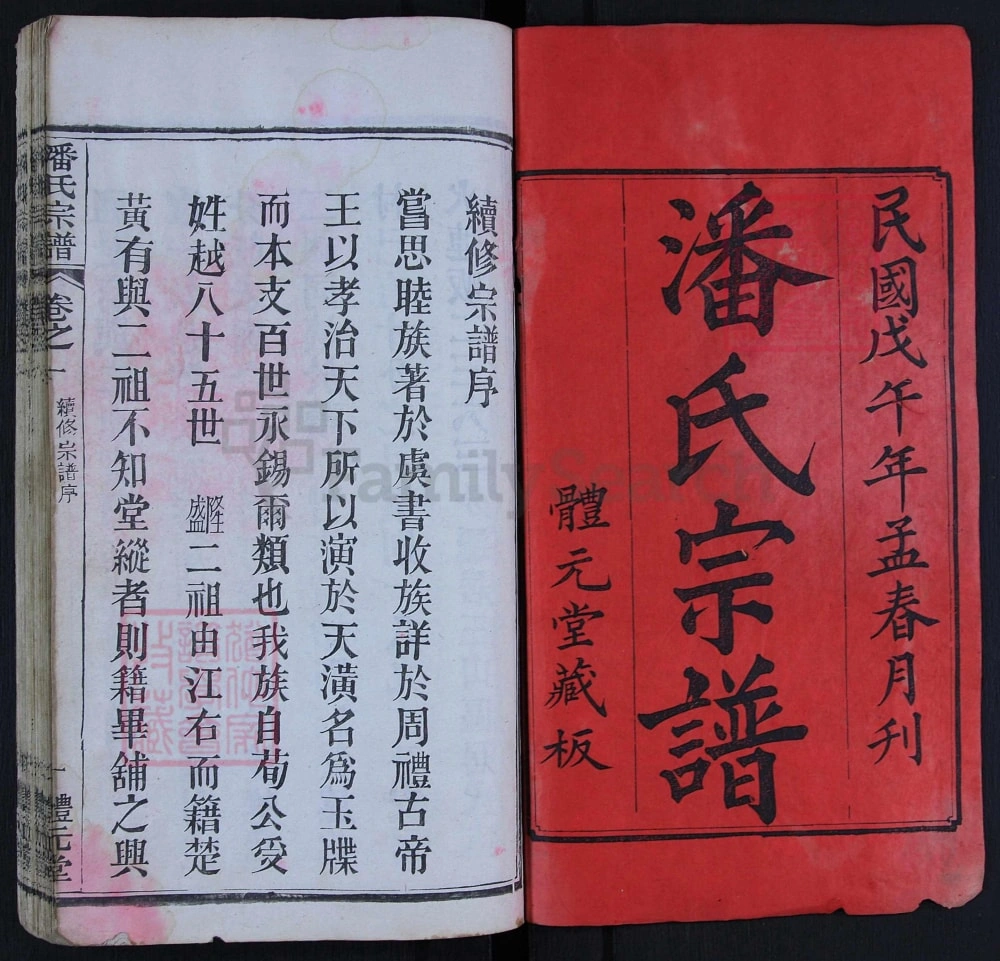 民國戊午年孟春月刊
潘氏宗譜
體元堂藏板
續修宗譜序
嘗思睦族著於虞書收族詳於周禮古帝
王以孝治天下所以演於天潢名爲玉牒
而本支百世永錫爾類也我族自荀公受
姓越八十五世 隆盛二祖由江右而籍楚
黃有與二祖不知堂縱者則籍畢舖之興
潘氏宗譜 卷之一 續修宗譜序 一 體元堂
FamilySearch